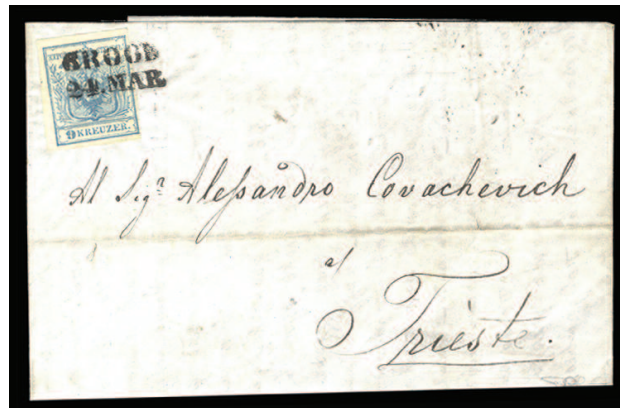 BROOD
24. MAR.
9 KREUZER.
Al Sigr. Alessandro Covachevich
a/
Trieste.